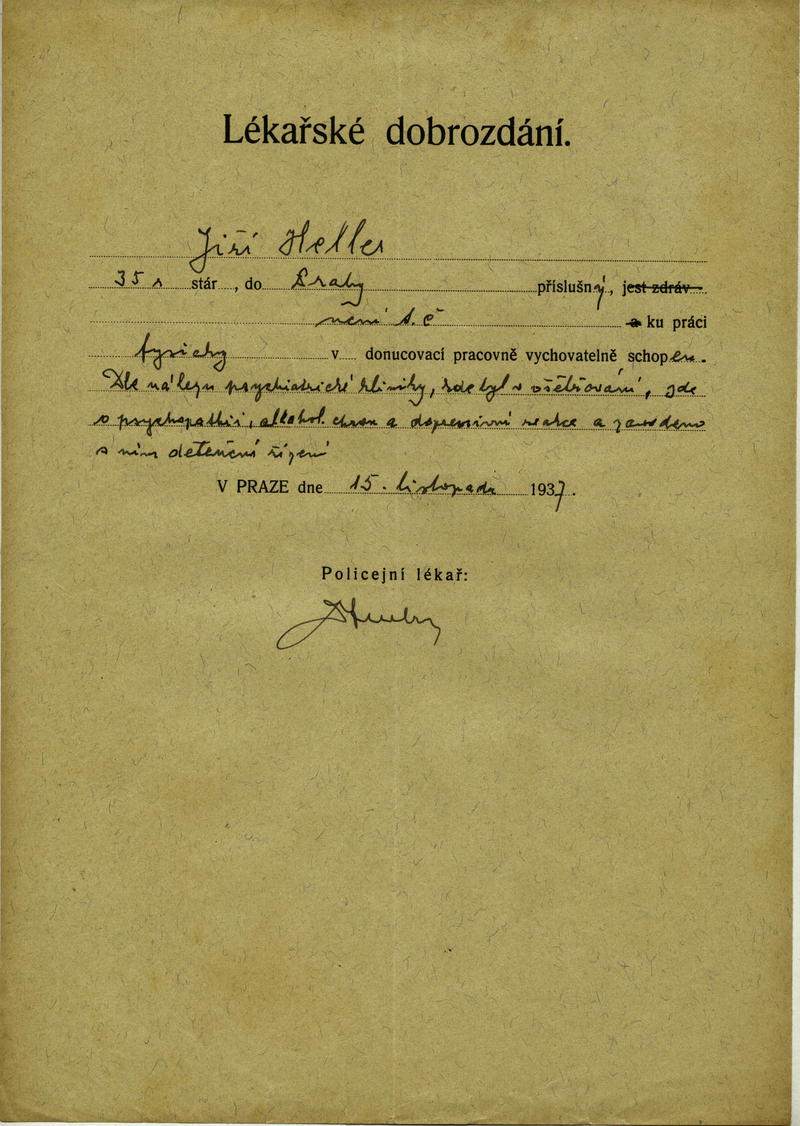 Lékařské dobrozdání.
Jiří Heller
35 r stár , do Prahy příslušný, jest zdráv
není t. č a ku práci
fysicky v donucovací pracovně vychovatelně schopen.
Dle nálezu psychiatrické kliniky, kde byl v ošetřování, jde
o psychopathii, alkohol. a a zavedeno
o něm řízení
V PRAZE dne 15. listopadu 1937.
Policejní lékař: